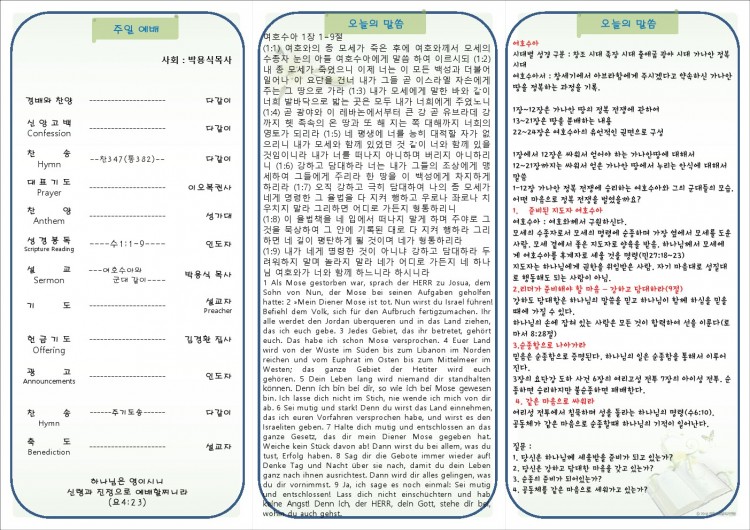 주일 예배
사회 : 박용식목사
경배와 찬양 ---------------------- 다같이
신 앙 고 백 ---------------------- 다같이
Confession
찬 송 --찬347(통382)-- 다같이
Hymn
대 표 기 도 ---------------------- 이오복권사
Prayer
찬 양 ---------------------- 성가대
Anthem
성 경 봉 독 ----수1:1-9---- 인도자
Scripture Reading
설 교 ---여호수아와 박용식 목사
Sermon 군대 같이----
기 도 ---------------------- 설교자
Preacher
헌 금 기 도 ---------------------- 김경환 집사
Offering
광 고 ---------------------- 인도자
Announcements
찬 송 ------주기도송------ 다같이
Hymn
축 도 ---------------------- 설교자
Benediction
하나님은 영이시니
신령과 진정으로 예배할찌니라
(요4:23)
오늘의 말씀
여호수아 1장 1-9절
(1:1) 여호와의 종 모세가 죽은 후에 여호와께서 모세의
수종자 눈의 아들 여호수아에게 말씀 하여 이르시되 (1:2)
내 종 모세가 죽었으니 이제 너는 이 모든 백성과 더불어
일어나 이 요단을 건너 내가 그들 곧 이스라엘 자손에게
주는 그 땅으로 가라 (1:3) 내가 모세에게 말한 바와 같이
너희 발바닥으로 밟는 곳은 모두 내가 너희에게 주었노니
(1:4) 곧 광야와 이 레바논에서부터 큰 강 곧 유브라데 강
까지 헷 족속의 온 땅과 또 해 지는 쪽 대해까지 너희의
영토가 되리라 (1:5) 네 평생에 너를 능히 대적할 자가 없
으리니 내가 모세와 함께 있었던 것 같이 너와 함께 있을
것임이니라 내가 너를 떠나지 아니하며 버리지 아니하리
니 (1:6) 강하고 담대하라 너는 내가 그들의 조상에게 맹
세하여 그들에게 주리라 한 땅을 이 백성에게 차지하게
하리라 (1:7) 오직 강하고 극히 담대하여 나의 종 모세가
네게 명령한 그 율법을 다 지켜 행하고 우로나 좌로나 치
우치지 말라 그리하면 어디로 가든지 형통하리니
(1:8) 이 율법책을 네 입에서 떠나지 말게 하며 주야로 그
것을 묵상하여 그 안에 기록된 대로 다 지켜 행하라 그리
하면 네 길이 평탄하게 될 것이며 네가 형통하리라
(1:9) 내가 네게 명령한 것이 아니냐 강하고 담대하라 두
려워하지 말며 놀라지 말라 네가 어디로 가든지 네 하나
님 여호와가 너와 함께 하느니라 하시니라
1 Als Mose gestorben war, sprach der HERR zu Josua, dem
Sohn von Nun, der Mose bei seinen Aufgaben geholfen
hatte: 2 »Mein Diener Mose ist tot. Nun wirst du Israel führen!
Befiehl dem Volk, sich für den Aufbruch fertigzumachen. Ihr
alle werdet den Jordan überqueren und in das Land ziehen,
das ich euch gebe. 3 Jedes Gebiet, das ihr betretet, gehört
euch. Das habe ich schon Mose versprochen. 4 Euer Land
wird von der Wüste im Süden bis zum Libanon im Norden
reichen und vom Euphrat im Osten bis zum Mittelmeer im
Westen; das ganze Gebiet der Hetiter wird euch
gehören. 5 Dein Leben lang wird niemand dir standhalten
können. Denn ich bin bei dir, so wie ich bei Mose gewesen
bin. Ich lasse dich nicht im Stich, nie wende ich mich von dir
ab. 6 Sei mutig und stark! Denn du wirst das Land einnehmen,
das ich euren Vorfahren versprochen habe, und wirst es den
Israeliten geben. 7 Halte dich mutig und entschlossen an das
ganze Gesetz, das dir mein Diener Mose gegeben hat.
Weiche kein Stück davon ab! Dann wirst du bei allem, was du
tust, Erfolg haben. 8 Sag dir die Gebote immer wieder auf!
Denke Tag und Nacht über sie nach, damit du dein Leben
ganz nach ihnen ausrichtest. Dann wird dir alles gelingen, was
du dir vornimmst. 9 Ja, ich sage es noch einmal: Sei mutig
und entschlossen! Lass dich nicht einschüchtern und hab
keine Angst! Denn ich, der HERR, dein Gott, stehe dir bei,
wohin du auch gehst.
오늘의 말씀
여호수아
시대별 성경 구분 : 창조 시대 족장 시대 출애굽 광야 시대 가나안 정복
시대
여호수아서 : 창세기에서 아브라함에게 주시겠다고 약속하신 가나안
땅을 정복하는 과정을 기록.
1장~12장은 가나안 땅의 정복 전쟁에 관하여
13~21장은 땅을 분배하는 내용
22~24장은 여호수아의 유언적인 권면으로 구성
1장에서 12장은 싸워서 얻어야 하는 가나안땅에 대해서
12~21장까지는 싸워서 얻은 가나안 땅에서 누리는 안식에 대해서
말씀
1-12장 가나안 정복 전쟁에 승리하는 여호수아와 그의 군대들의 모습.
어떤 마음으로 정복 전쟁을 벌였을까요?
1. 준비된 지도자 여호수아
여호수아 : 여호와께서 구원하신다.
모세의 수종자로서 모세의 명령에 순종하며 가장 옆에서 모세를 도운
사람. 모세 곁에서 좋은 지도자로 양육을 받음. 하나님께서 모세에
게 여호수아를 후계자로 세울 것을 명령(민27:18~23)
지도자는 하나님에게 권한을 위임받은 사람. 자기 마음대로 성질대
로 행동해도 되는 사람이 아님.
2.리더가 준비해야 할 마음 - 강하고 담대하라(9절)
강하고 담대함은 하나님의 말씀을 믿고 하나님이 함께 하심을 믿을
때에 가질 수 있다.
하나님의 손에 잡혀 있는 사람은 모든 것이 합력하여 선을 이룬다(로
마서 8:28절)
3.순종함으로 나아가라
믿음은 순종함으로 증명된다. 하나님의 일은 순종함을 통해서 이루어
진다.
3장의 요단강 도하 사건 6장의 여리고성 전투 7장의 아이성 전투. 순
종하면 승리하지만 불순종하면 패배한다.
4. 같은 마음으로 싸워라
여리성 전투에서 침묵하며 성을 돌라는 하나님의 명령(수6:10).
공동체가 같은 마음으로 순종할때 하나님의 기적이 일어난다.
질문 :
1. 당신은 하나님께 세움받을 준비가 되어 있는가?
2. 당신은 강하고 담대한 마음을 갖고 있는가?
3. 순종의 준비가 되어있는가?
4. 공동체를 같은 마음으로 세워가고 있는가?